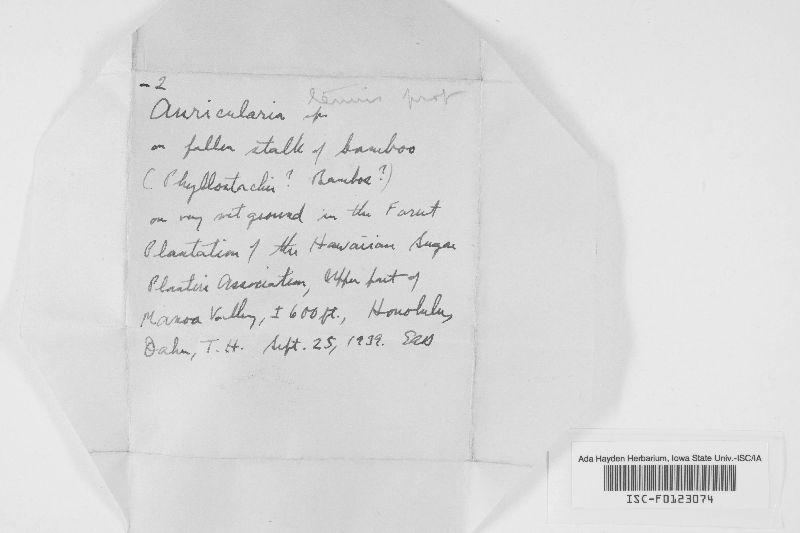 -2
tenuis prob
Auricularia sp
on fallen stalk of bamboo
(Phyllostachis? Bambos?)
on very wet ground in the Forest
Plantation of the Hawaiian Sugar
Planters Association, Upper part of
Manoa Valley, ± 600 ft., Honolulu,
Oahu, T. H. Sept. 25, 1939.
Ada Hayden Herbarium, Iowa State Univ.-ISC/IA
ISC-F0123074